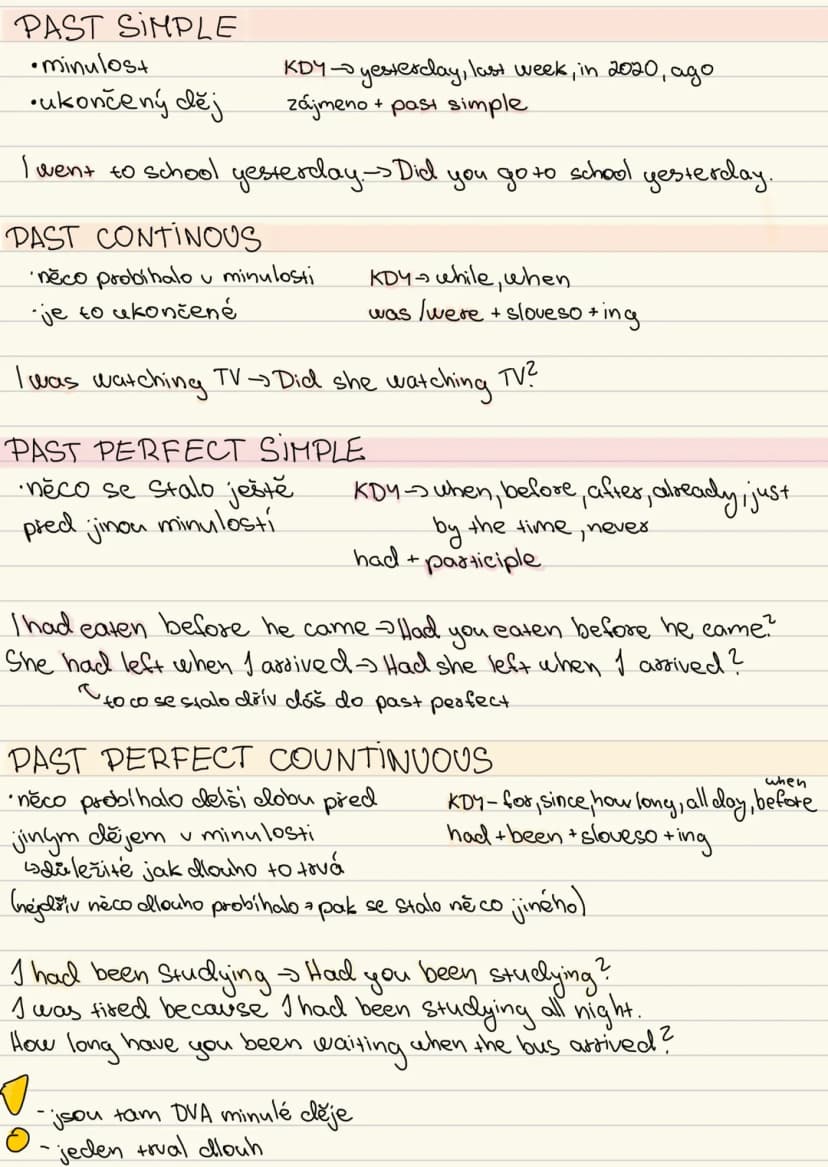 PAST SIMPLE
•minulost KDY→yesterday, last week, in 2020, ago
•ukončený děj zájmeno + past simple
I went to school yesterday.→Did you go to school yesterday.
PAST CONTINOUS
•něco probíhalo v minulosti KDY→while, when
•je to ukončené was/were + sloveso + ing
I was watching TV→Did she watching TV?
PAST PERFECT SIMPLE
•něco se stalo ještě KDY→when, before, after, already, just
před jinou minulostí by the time, never
had + participle
I had eaten before he came→Had you eaten before he came?
She had left when I arrived→Had she left when I arrived?
to co se stalo dřív dáš do past perfect
PAST PERFECT COUNTINUOUS
when
•něco probíhalo delší dobu před KDY-for, since, how long, all day, before
jiným dějem v minulosti had + been + sloveso + ing
↳důležité jak dlouho to trvá
(nejdřív něco dlouho probíhalo→pak se stalo něco jiného)
I had been studying→Had you been studying?
I was tired because I had been studying all night.
How long have you been waiting when the bus arrived?
-jsou tam DVA minulé děje
-jeden trval dlouh